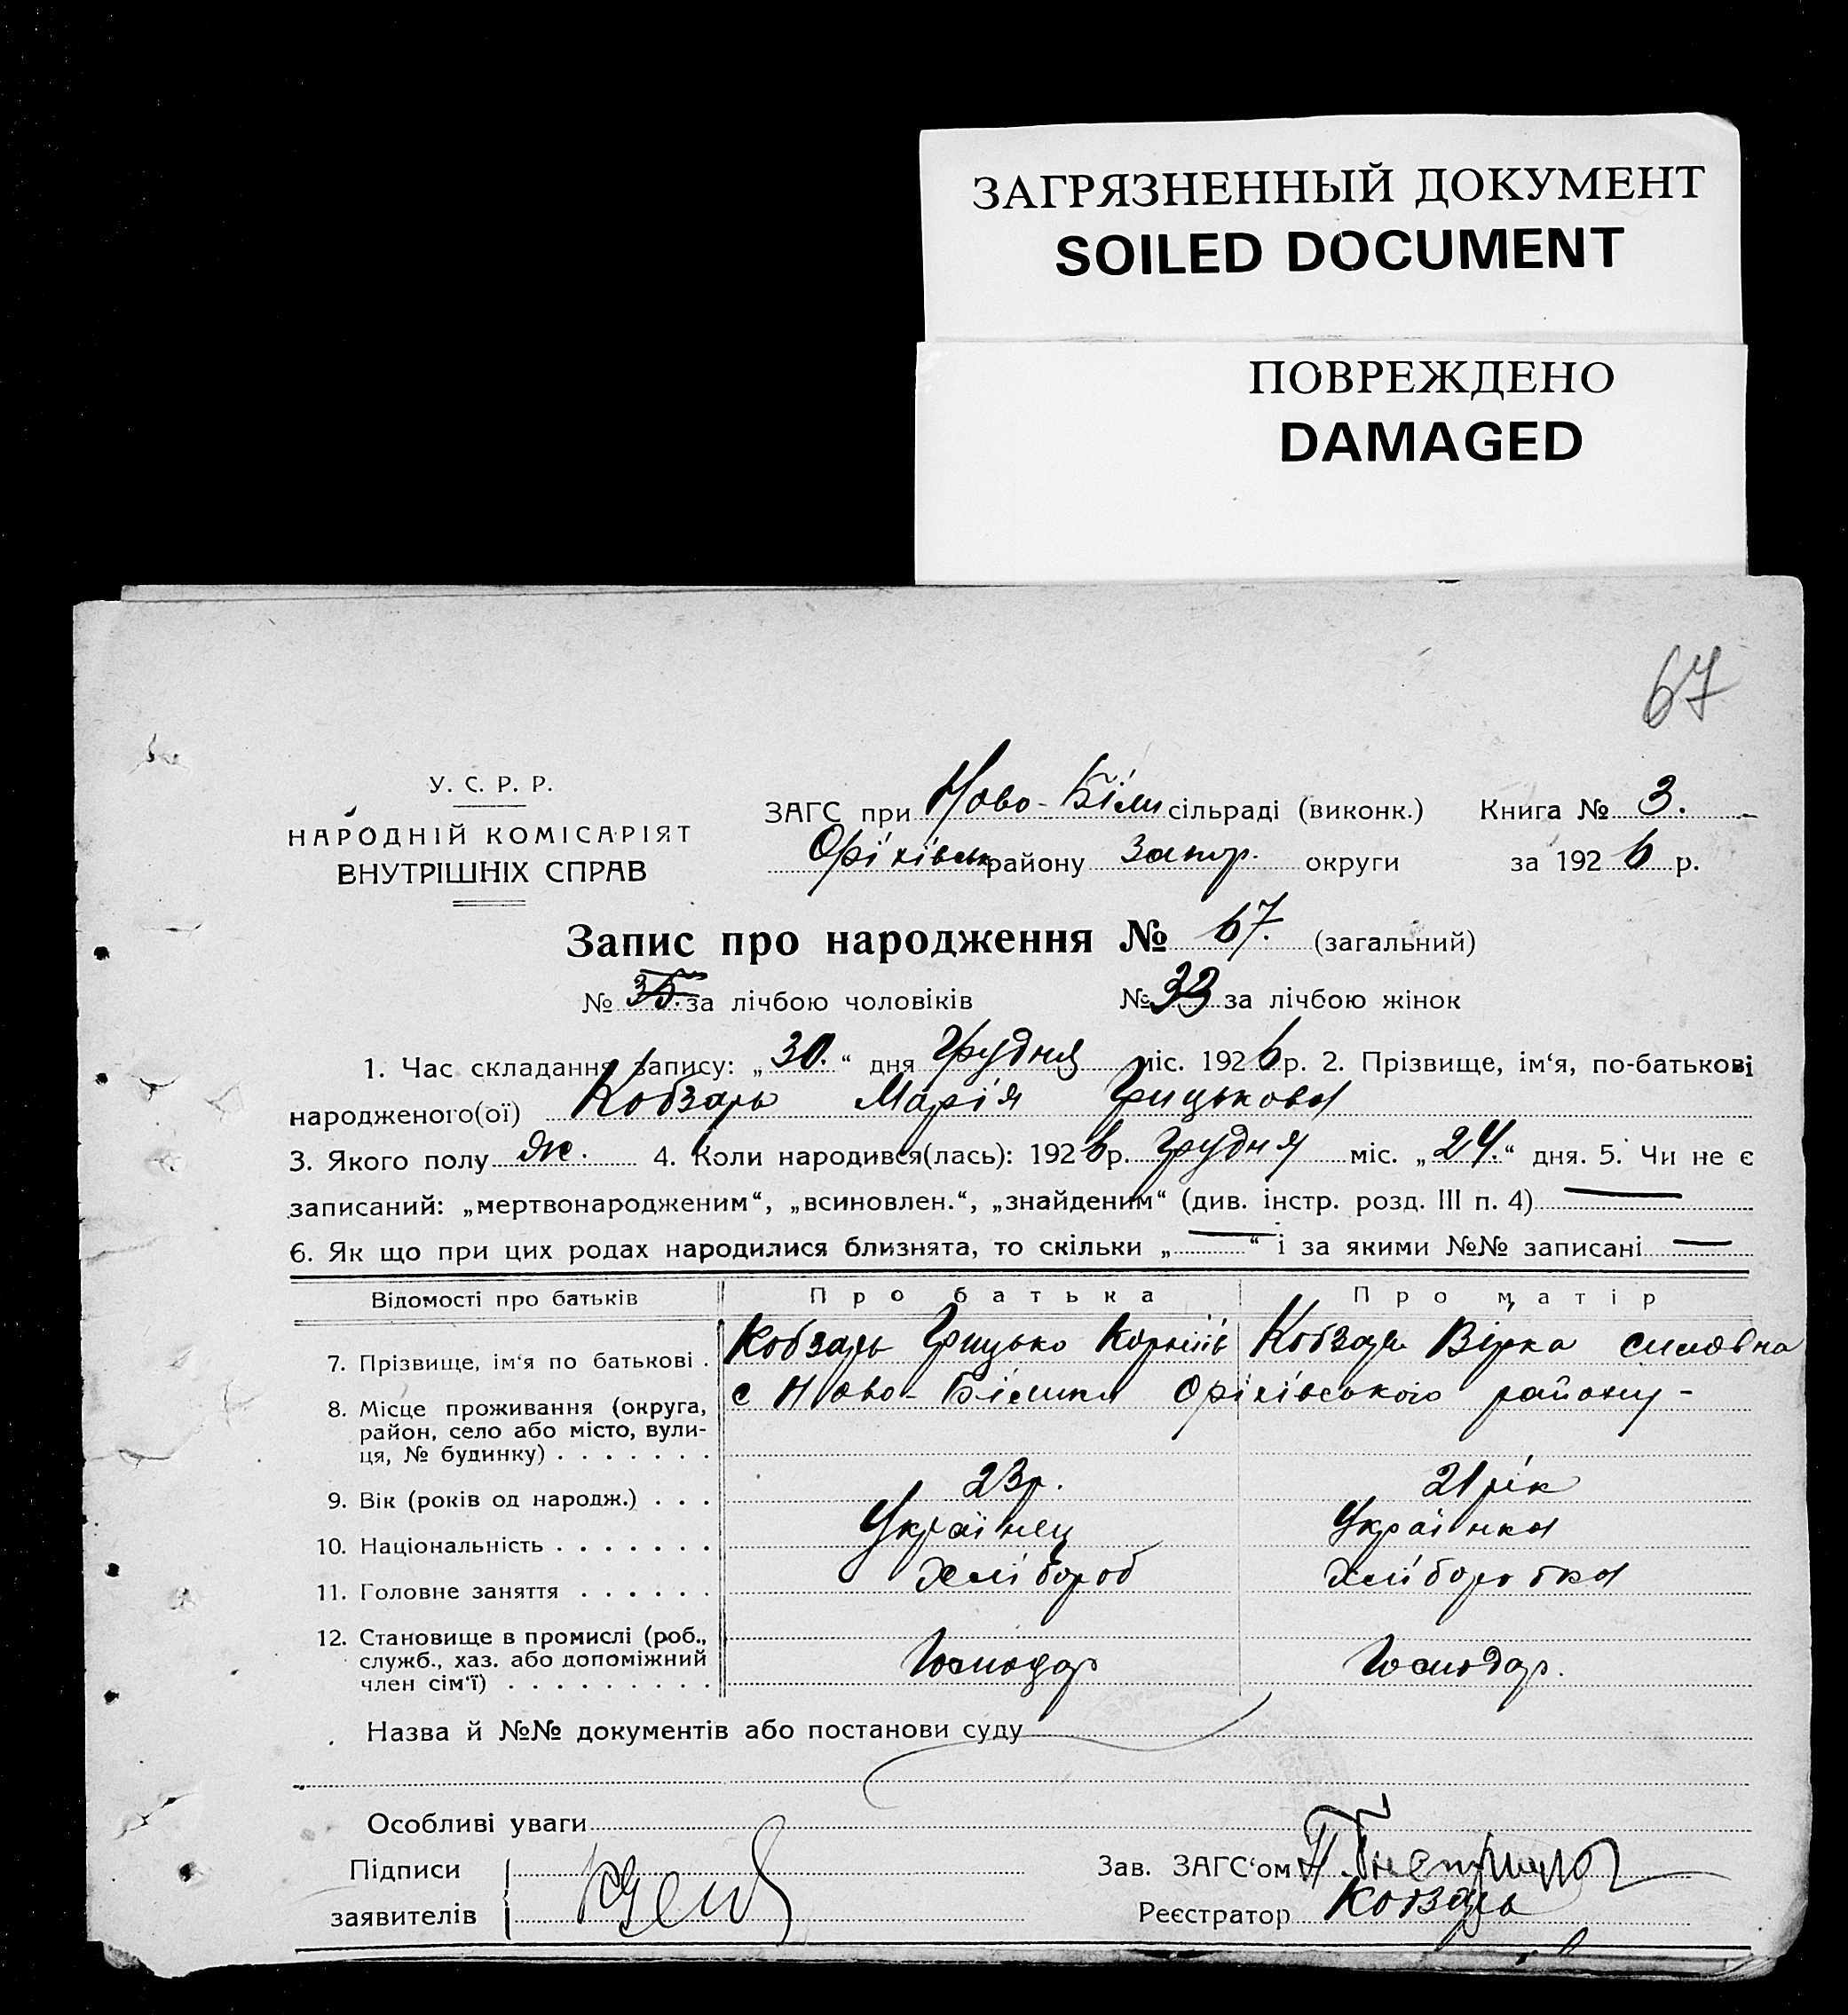 ЗАГРЯЗНЕННЫЙ ДОКУМЕНТ
SOILED DOCUMENT
ПОВРЕЖДЕНО
DAMAGED
67
У. С. Р. Р.
НАРОДНІЙ КОМІСАРІЯТ
ВНУТРІШНІХ СПРАВ
ЗАГС при Ново-Білм сільраді (виконк.) Книга № 3.
Оріхівськ району Запор. округи за 1926 р.
Запис про народження № 67. (загальний)
№ 35. за лічбою чоловіків № 33 за лічбою жінок
1. Час складання запису: „30.“ дня Грудня міс. 1926 р. 2. Прізвище, ім‘я, по-батькові
народженого(ої) Кобзарь Марія Грицькова
3. Якого полу Ж. 4. Коли народився(лась): 1926 р. Грудня міс. „24.“ дня. 5. Чи не є
записаний: „мертвонародженим“, „всиновлен.“, „знайденим“ (див. інстр. розд. III п. 4) —
6. Як що при цих родах народилися близнята, то скільки „—“ і за якими №№ записані —
Відомості про батьків Про батька Про матір
7. Прізвище, ім‘я по батькові . Кобзарь Грицько Корніїв Кобзарь Вірка
8. Місце проживання (округа, с Ново- Оріхівського району -
район, село або місто, вули-
ця, № будинку) . . . . . . .
9. Вік (років од народж.) . . . 23р. 21 рік
10. Національність . . . . . . . Українец Українка
11. Головне заняття . . . . . . Хлібороб Хліборобка
12. Становище в промислі (роб.,
служб., хаз. або допоміжний Господар Господар.
член сім‘ї) . . . . . . . . .
Назва й №№ документів або постанови суду
Особливі уваги
Підписи Зав. ЗАГС‘ом
заявителів Реєстратор Кобзарь